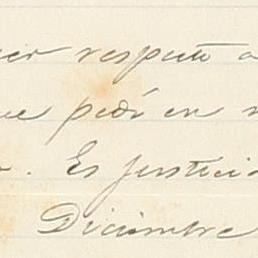 respeto a
que pedí en
. Es justicia
Diciembre